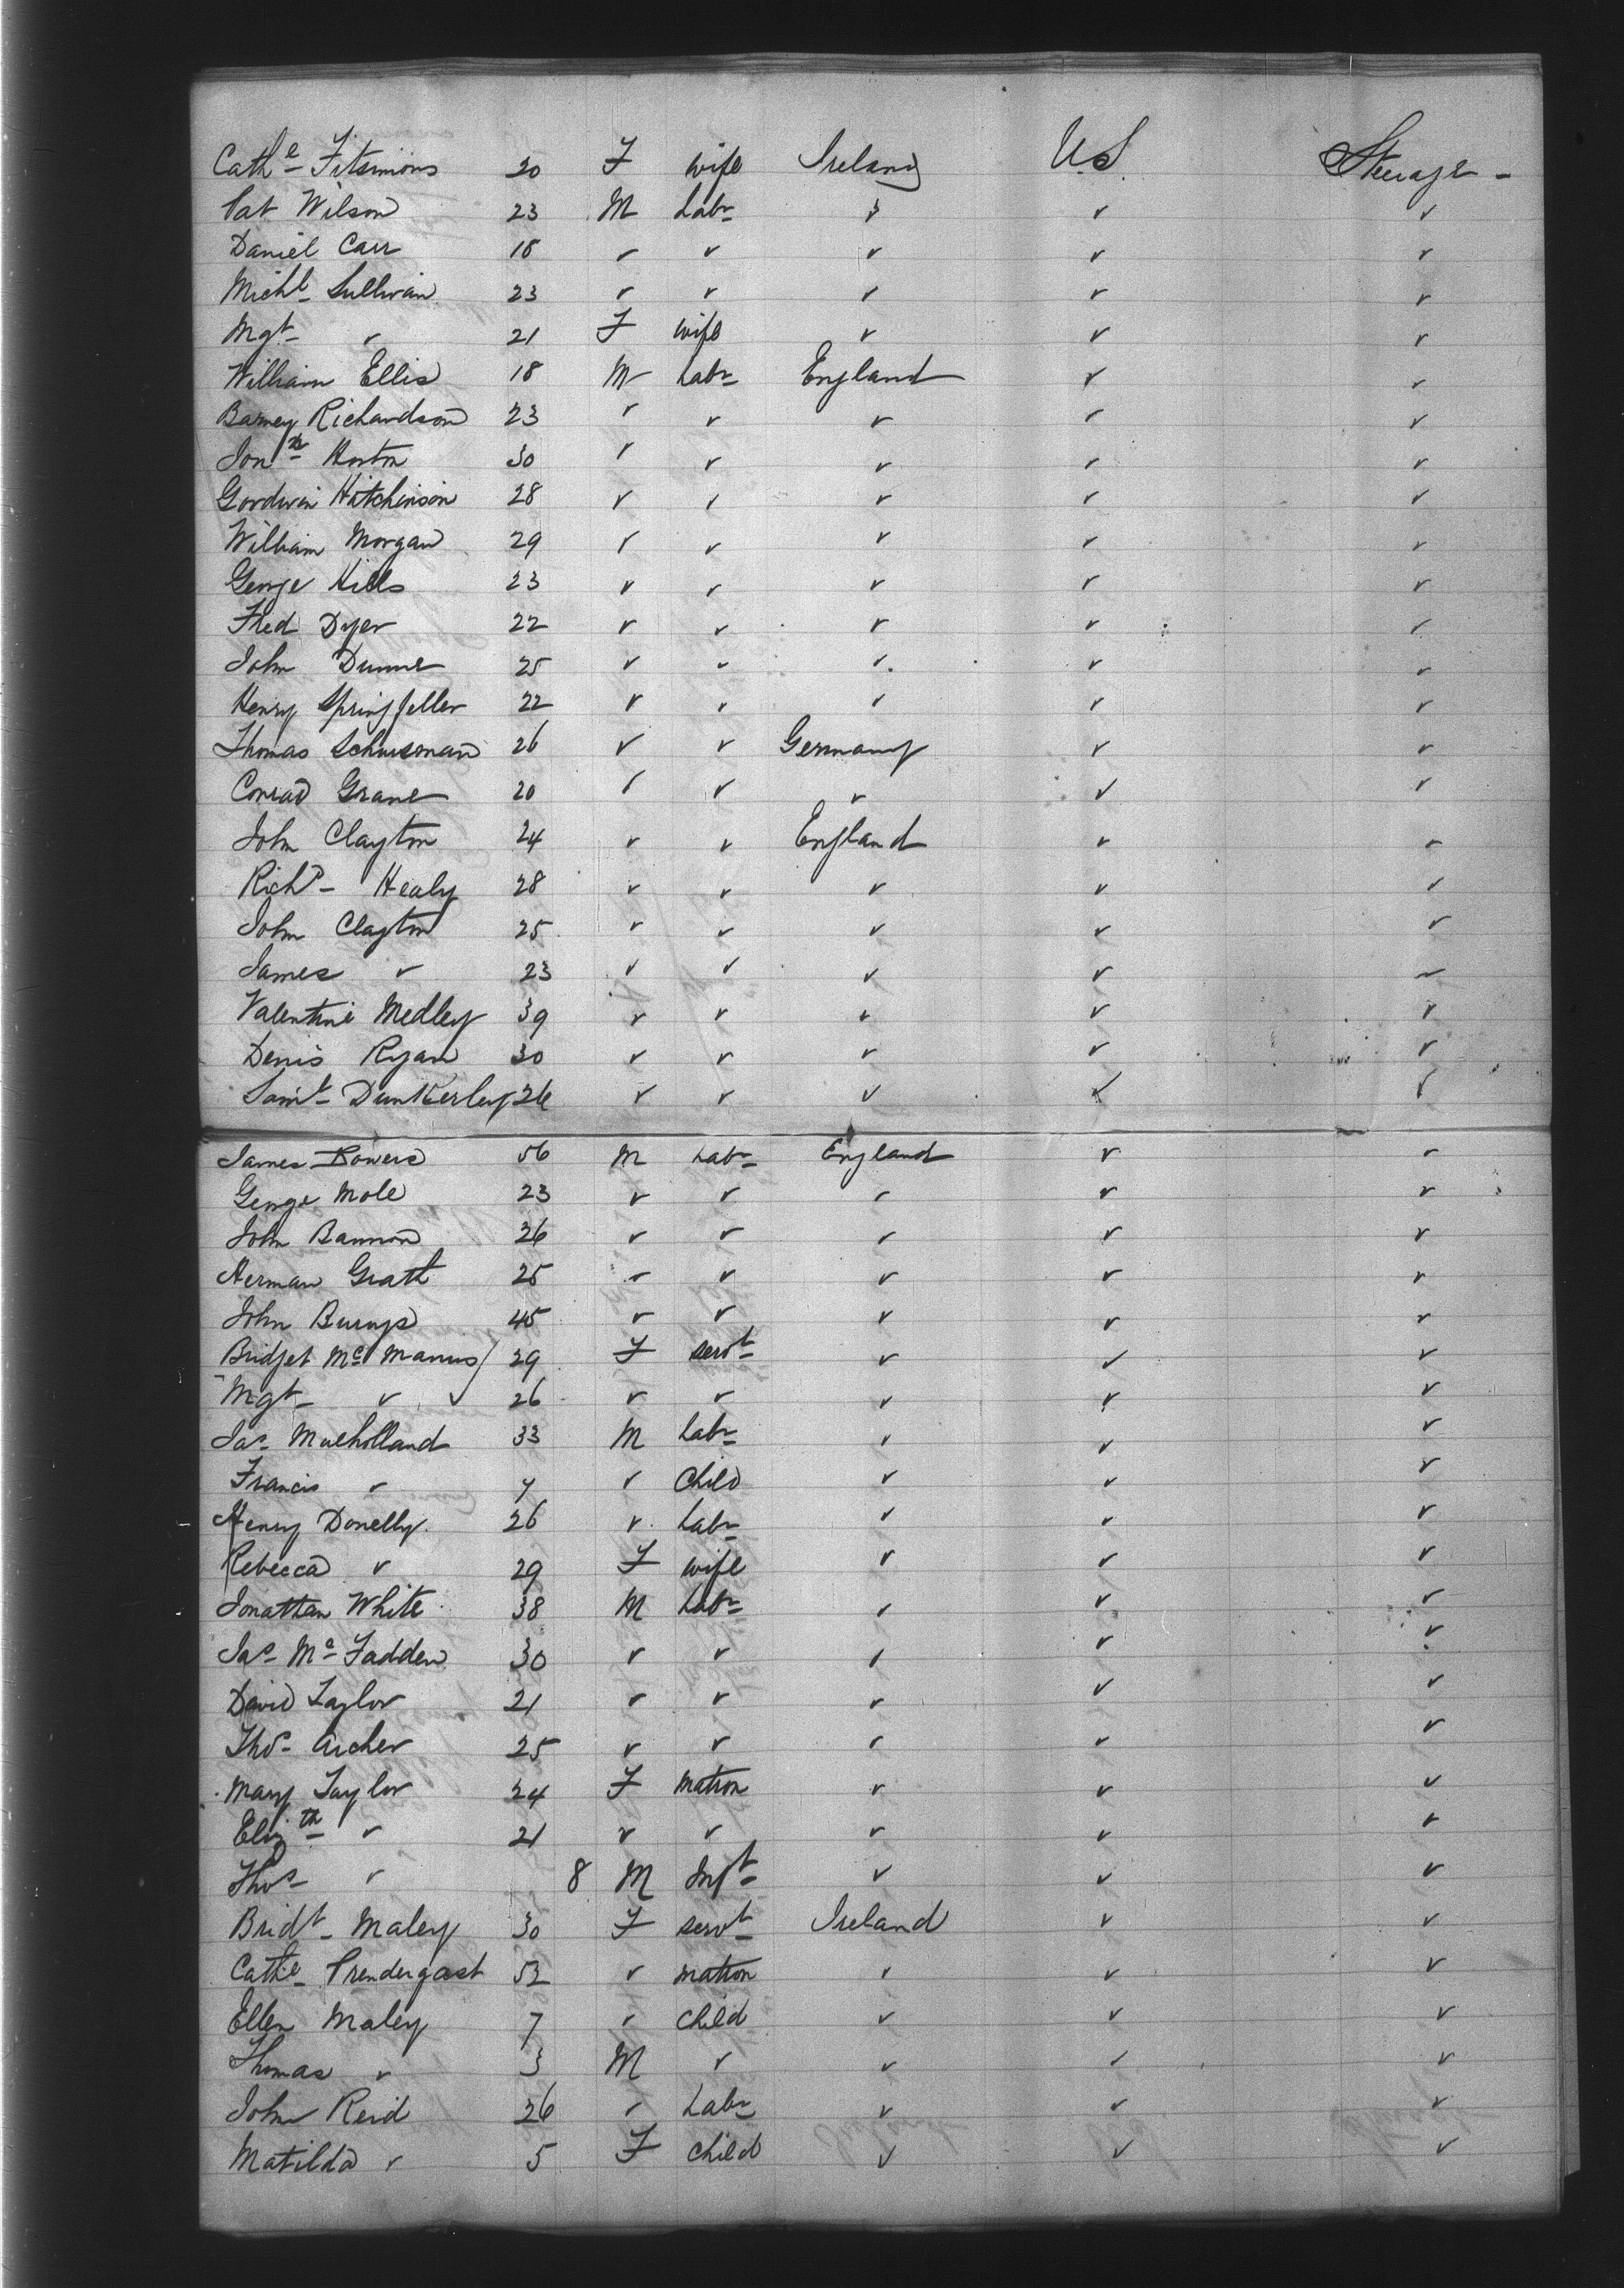 Cathe Fitsimons 20 F wife Ireland U.S. Steerage -
Pat Wilson 23 M Labr ✓ ✓ ✓
Daniel Carr 18 ✓ ✓ ✓ ✓ ✓
Michl Sullivan 23 ✓ ✓ ✓ ✓ ✓
Mgt ✓ 21 F wife ✓ ✓ ✓
William Ellis 18 M Labr England ✓ ✓
Barney Richardson 23 ✓ ✓ ✓ ✓ ✓
Jonn Horton 30 ✓ ✓ ✓ ✓ ✓
Gordwin Hutchinson 28 ✓ ✓ ✓ ✓ ✓
William Morgan 29 ✓ ✓ ✓ ✓ ✓
George Hills 23 ✓ ✓ ✓ ✓ ✓
Fred Dyer 22 ✓ ✓ ✓ ✓ ✓
John Dunne 25 ✓ ✓ ✓ ✓ ✓
Henry Springfeller 22 ✓ ✓ ✓ ✓ ✓
Thomas 26 ✓ ✓ Germany ✓ ✓
Conrad Grane 20 ✓ ✓ ✓ ✓ ✓
John Clayton 24 ✓ ✓ England ✓ ✓
Richd Healy 28 ✓ ✓ ✓ ✓ ✓
John Clayton 25 ✓ ✓ ✓ ✓ ✓
James ✓ 23 ✓ ✓ ✓ ✓ ✓
Valentine Medley 39 ✓ ✓ ✓ ✓ ✓
Denis Ryan 30 ✓ ✓ ✓ ✓ ✓
Saml Dunkerley 26 ✓ ✓ ✓ ✓ ✓
James Bowers 56 M Labr England ✓ ✓
George Mole 23 ✓ ✓ ✓ ✓ ✓
John Bannon 26 ✓ ✓ ✓ ✓ ✓
Herman Grath 25 ✓ ✓ ✓ ✓ ✓
John 45 ✓ ✓ ✓ ✓ ✓
Bridget McManus 29 F servt ✓ ✓ ✓
Mgt ✓ 26 ✓ ✓ ✓ ✓ ✓
Jas Mulholland 33 M Labr ✓ ✓ ✓
Francis ✓ 7 ✓ Child ✓ ✓ ✓
Henry Donelly 26 ✓ Labr ✓ ✓ ✓
Rebecca ✓ 29 F wife ✓ ✓ ✓
Jonathan White 38 M Labr ✓ ✓ ✓
Jas McFadden 30 ✓ ✓ ✓ ✓ ✓
David Taylor 21 ✓ ✓ ✓ ✓ ✓
Thos Archer 25 ✓ ✓ ✓ ✓ ✓
Mary Taylor 24 F matron ✓ ✓ ✓
Elizth ✓ 21 ✓ ✓ ✓ ✓ ✓
Thos ✓ 8 M Inft ✓ ✓ ✓
Bridt Maley 30 F servt Ireland ✓ ✓
Cathe Prendergast 52 ✓ matron ✓ ✓ ✓
Ellen Maley 7 ✓ child ✓ ✓ ✓
Thomas ✓ 3 M ✓ ✓ ✓ ✓
John Reid 26 ✓ Labr ✓ ✓ ✓
Matilda ✓ 5 F child ✓ ✓ ✓